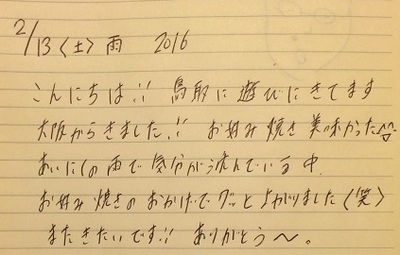 2/13〈土〉雨 2016
こんにちは!! 鳥取に遊びにきてます
大阪からきました!! お好み焼き美味かった
あいにくの雨で気分が沈んでいる中
お好み焼きのおかげでグッと よがりました〈笑〉
またきたいです!! ありがとう〜。